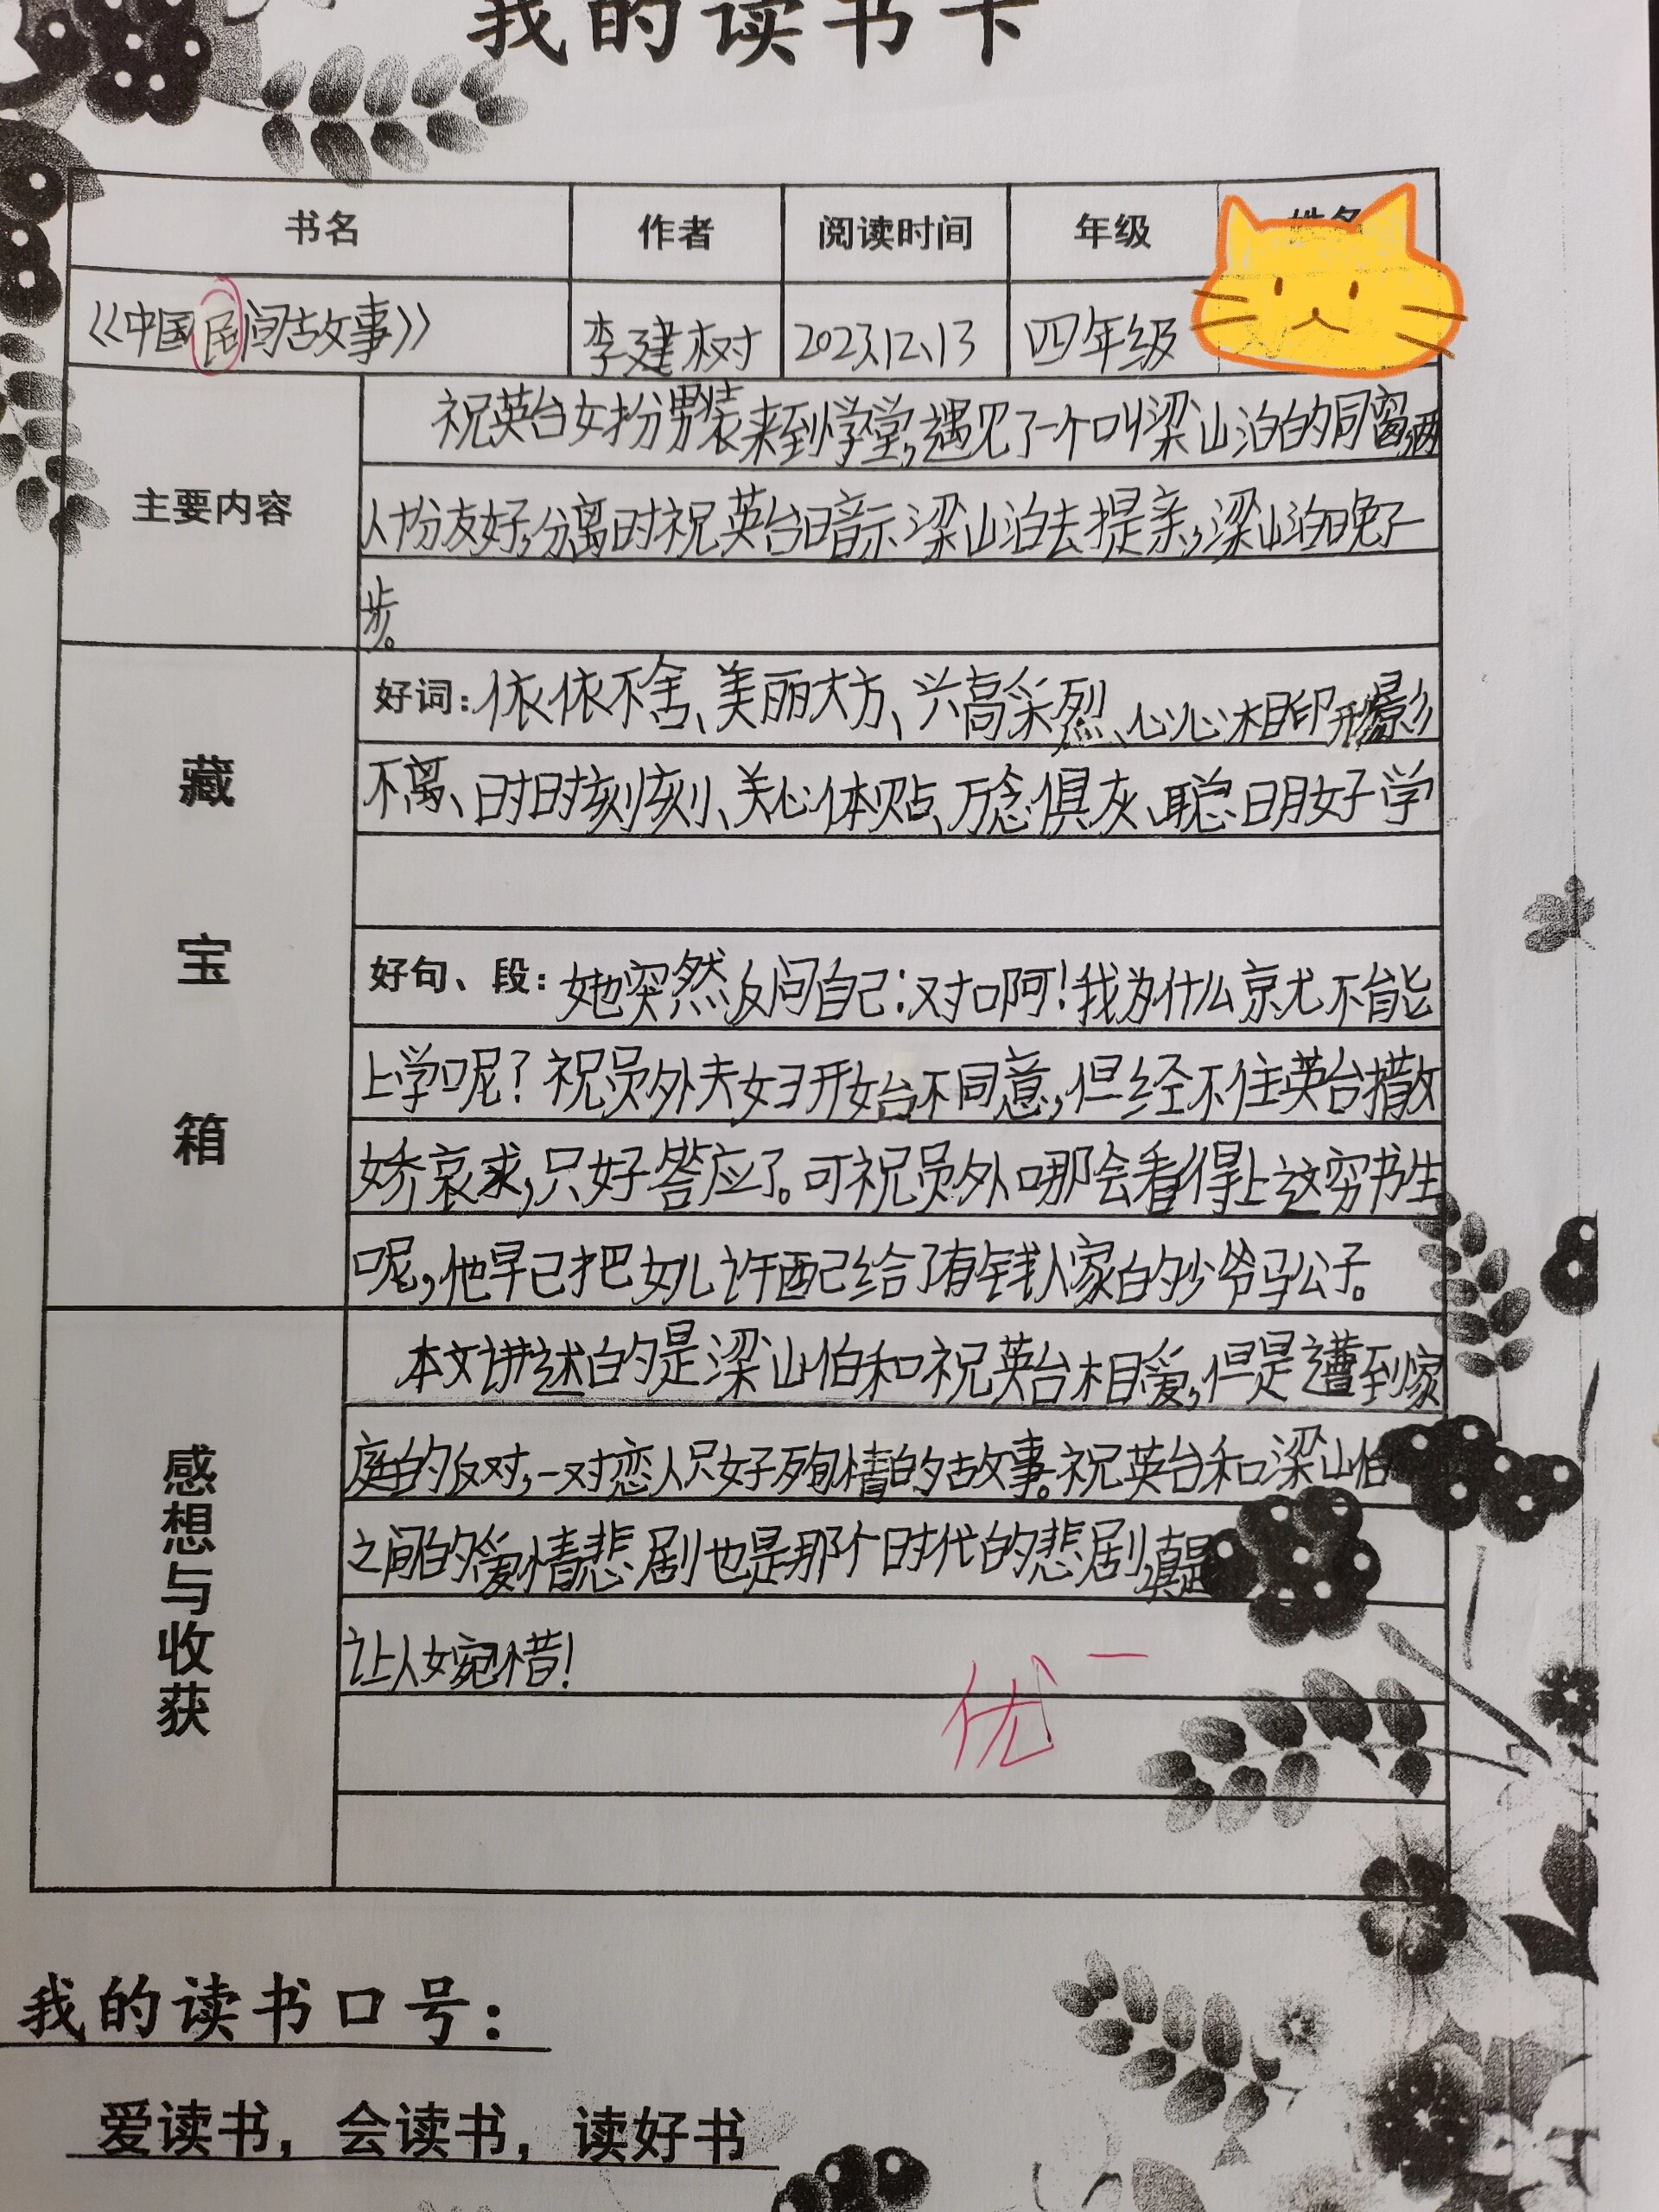 我的读书卡
书名 作者 阅读时间 年级 姓名
《中国民间故事》 李建树 2023.12.13 四年级
祝英台女扮男装来到学堂,遇见了一个叫梁山泊的同窗,两
主要内容
人十分友好,分离时祝英台暗示梁山泊去提亲,梁山泊晚了一
步。
藏宝箱
好词:依依不舍、美丽大方、兴高采烈、心心相印、形影
不离、时时刻刻、关心体贴、万念俱灰、聪明好学
好句、段:她突然反问自己:对啊!我为什么就不能
上学呢?祝员外夫妇开始不同意,但经不住英台撒
娇哀求,只好答应了。可祝员外哪会看得上这穷书生
呢,他早已把女儿许配给了有钱人家的少爷马公子。
感想与收获
本文讲述的是梁山伯和祝英台相爱,但是遭到家
庭的反对,一对恋人只好殉情的故事。祝英台和梁山伯
之间的爱情悲剧也是那个时代的悲剧,真是
让人婉惜!
优-
我的读书口号:
爱读书,会读书,读好书